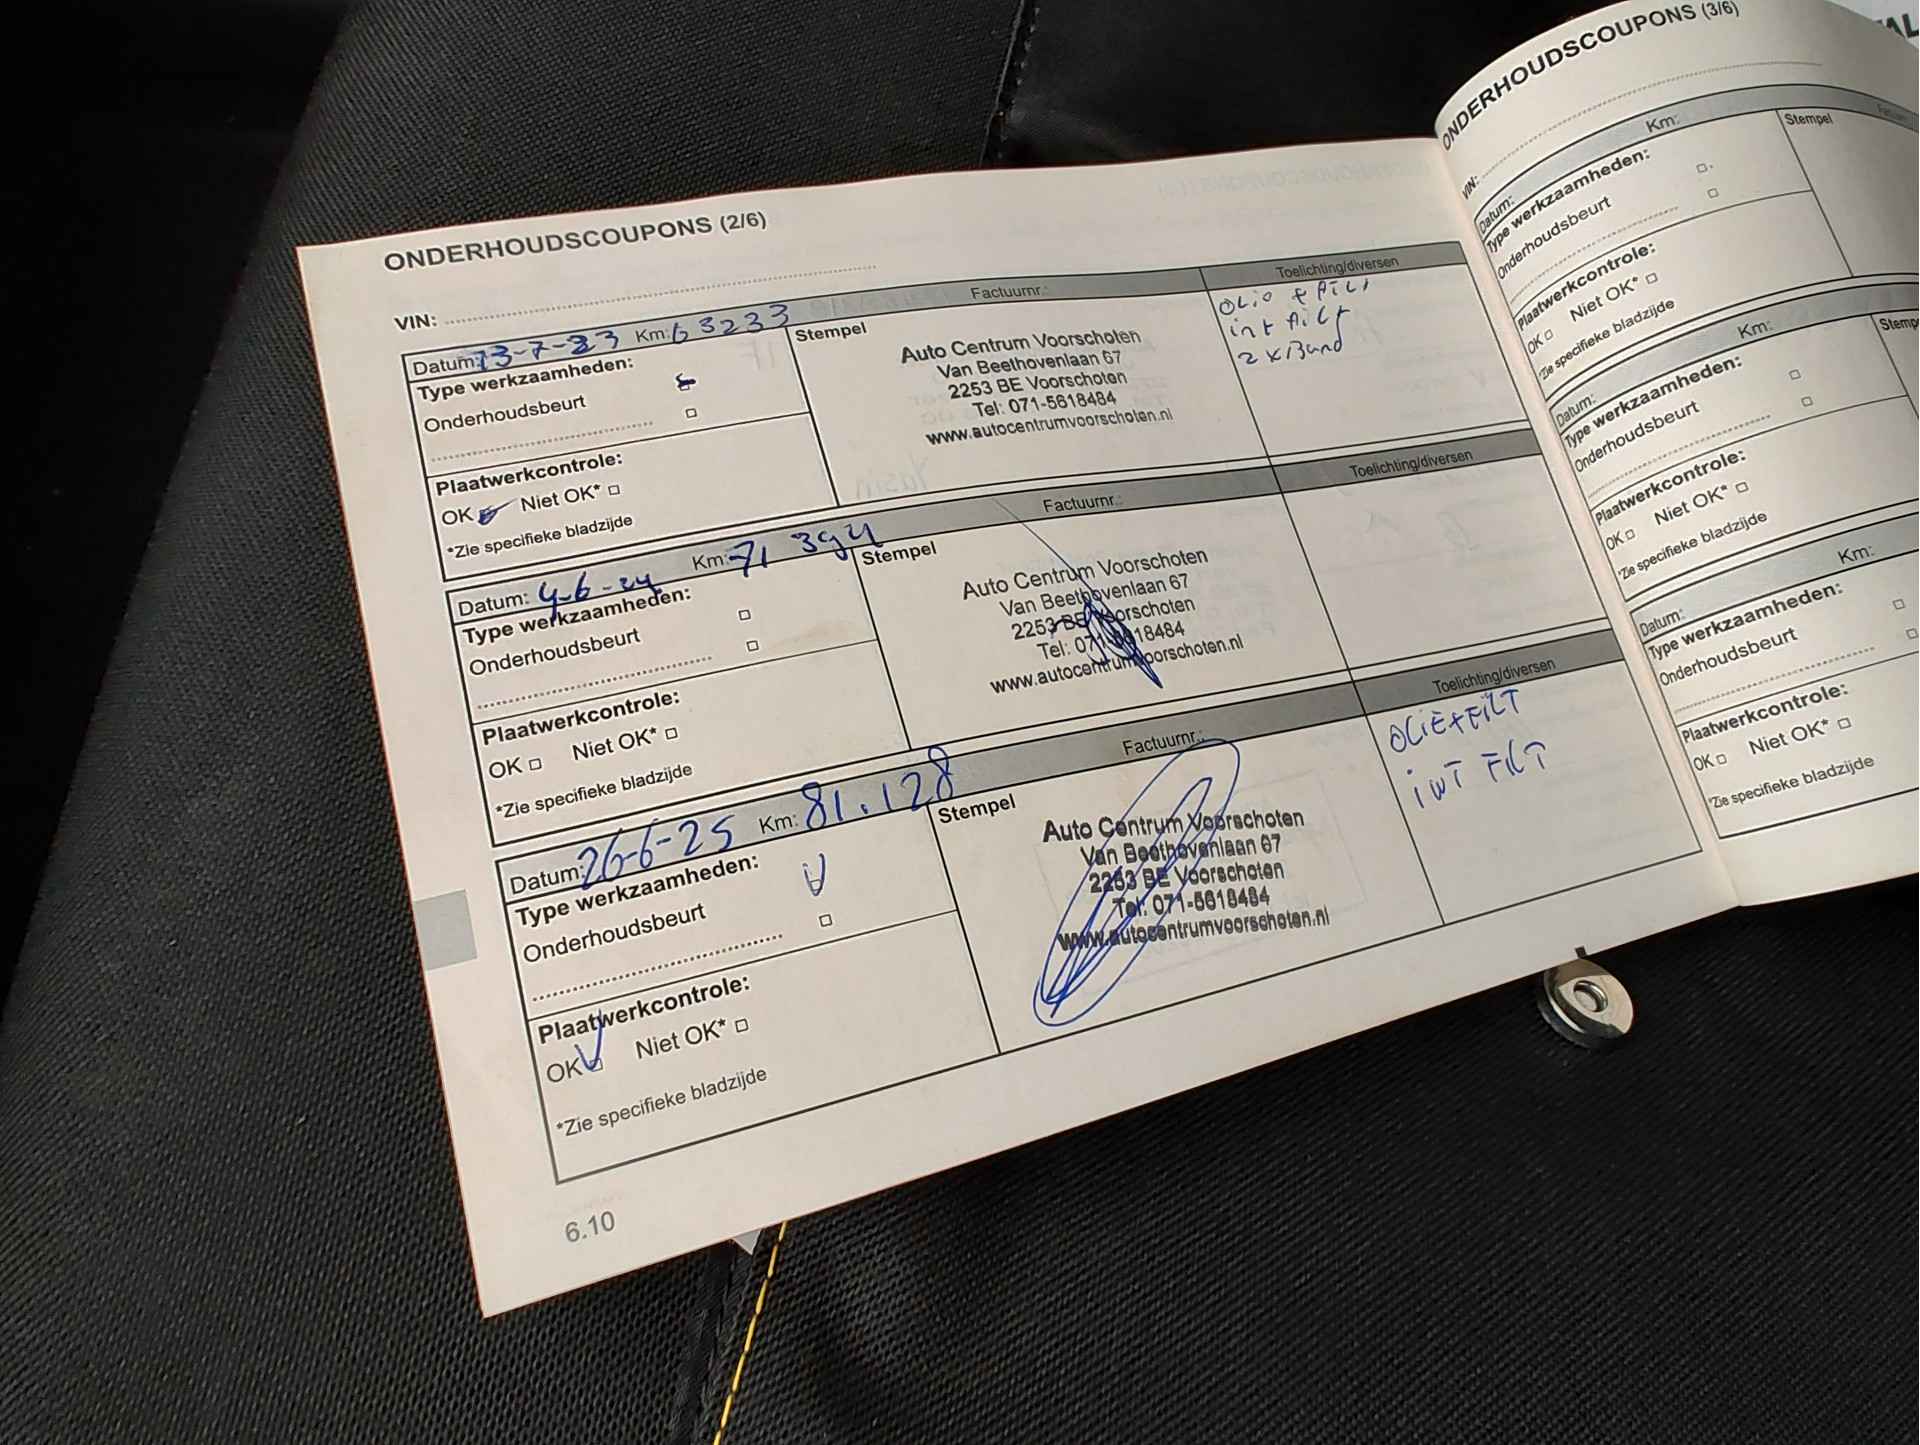 ONDERHOUDSCOUPONS (2/6)
VIN:
Datum: 13-7-23 Km: 63233 Factuurnr.: Toelichting/diversen
Type werkzaamheden:
Onderhoudsbeurt
Plaatwerkcontrole:
OK Niet OK*
*Zie specifieke bladzijde
Stempel
Auto Centrum Voorschoten
Van Beethovenlaan 67
2253 BE Voorschoten
Tel: 071-5618484
www.autocentrumvoorschoten.nl
OLIO + FILT
int FILT
2 x Band
Datum: 4-6-24 Km: 71 394 Factuurnr.: Toelichting/diversen
Type werkzaamheden:
Onderhoudsbeurt
Plaatwerkcontrole:
OK Niet OK*
*Zie specifieke bladzijde
Stempel
Auto Centrum Voorschoten
Van Beethovenlaan 67
2253 BE Voorschoten
Tel: 071-5618484
www.autocentrumvoorschoten.nl
Datum: 26-6-25 Km: 81.128 Factuurnr.: Toelichting/diversen
Type werkzaamheden:
Onderhoudsbeurt
Plaatwerkcontrole:
OK Niet OK*
*Zie specifieke bladzijde
Stempel
Auto Centrum Voorschoten
Van Beethovenlaan 67
2253 BE Voorschoten
Tel: 071-5618484
www.autocentrumvoorschoten.nl
OLIE+FILT
INT FILT
6.10
ONDERHOUDSCOUPONS (3/6)
VIN:
Datum: Km:
Type werkzaamheden:
Onderhoudsbeurt
Plaatwerkcontrole:
OK Niet OK*
*Zie specifieke bladzijde
Stempel
Datum: Km:
Type werkzaamheden:
Onderhoudsbeurt
Plaatwerkcontrole:
OK Niet OK*
*Zie specifieke bladzijde
Datum: Km:
Type werkzaamheden:
Onderhoudsbeurt
Plaatwerkcontrole:
OK Niet OK*
*Zie specifieke bladzijde